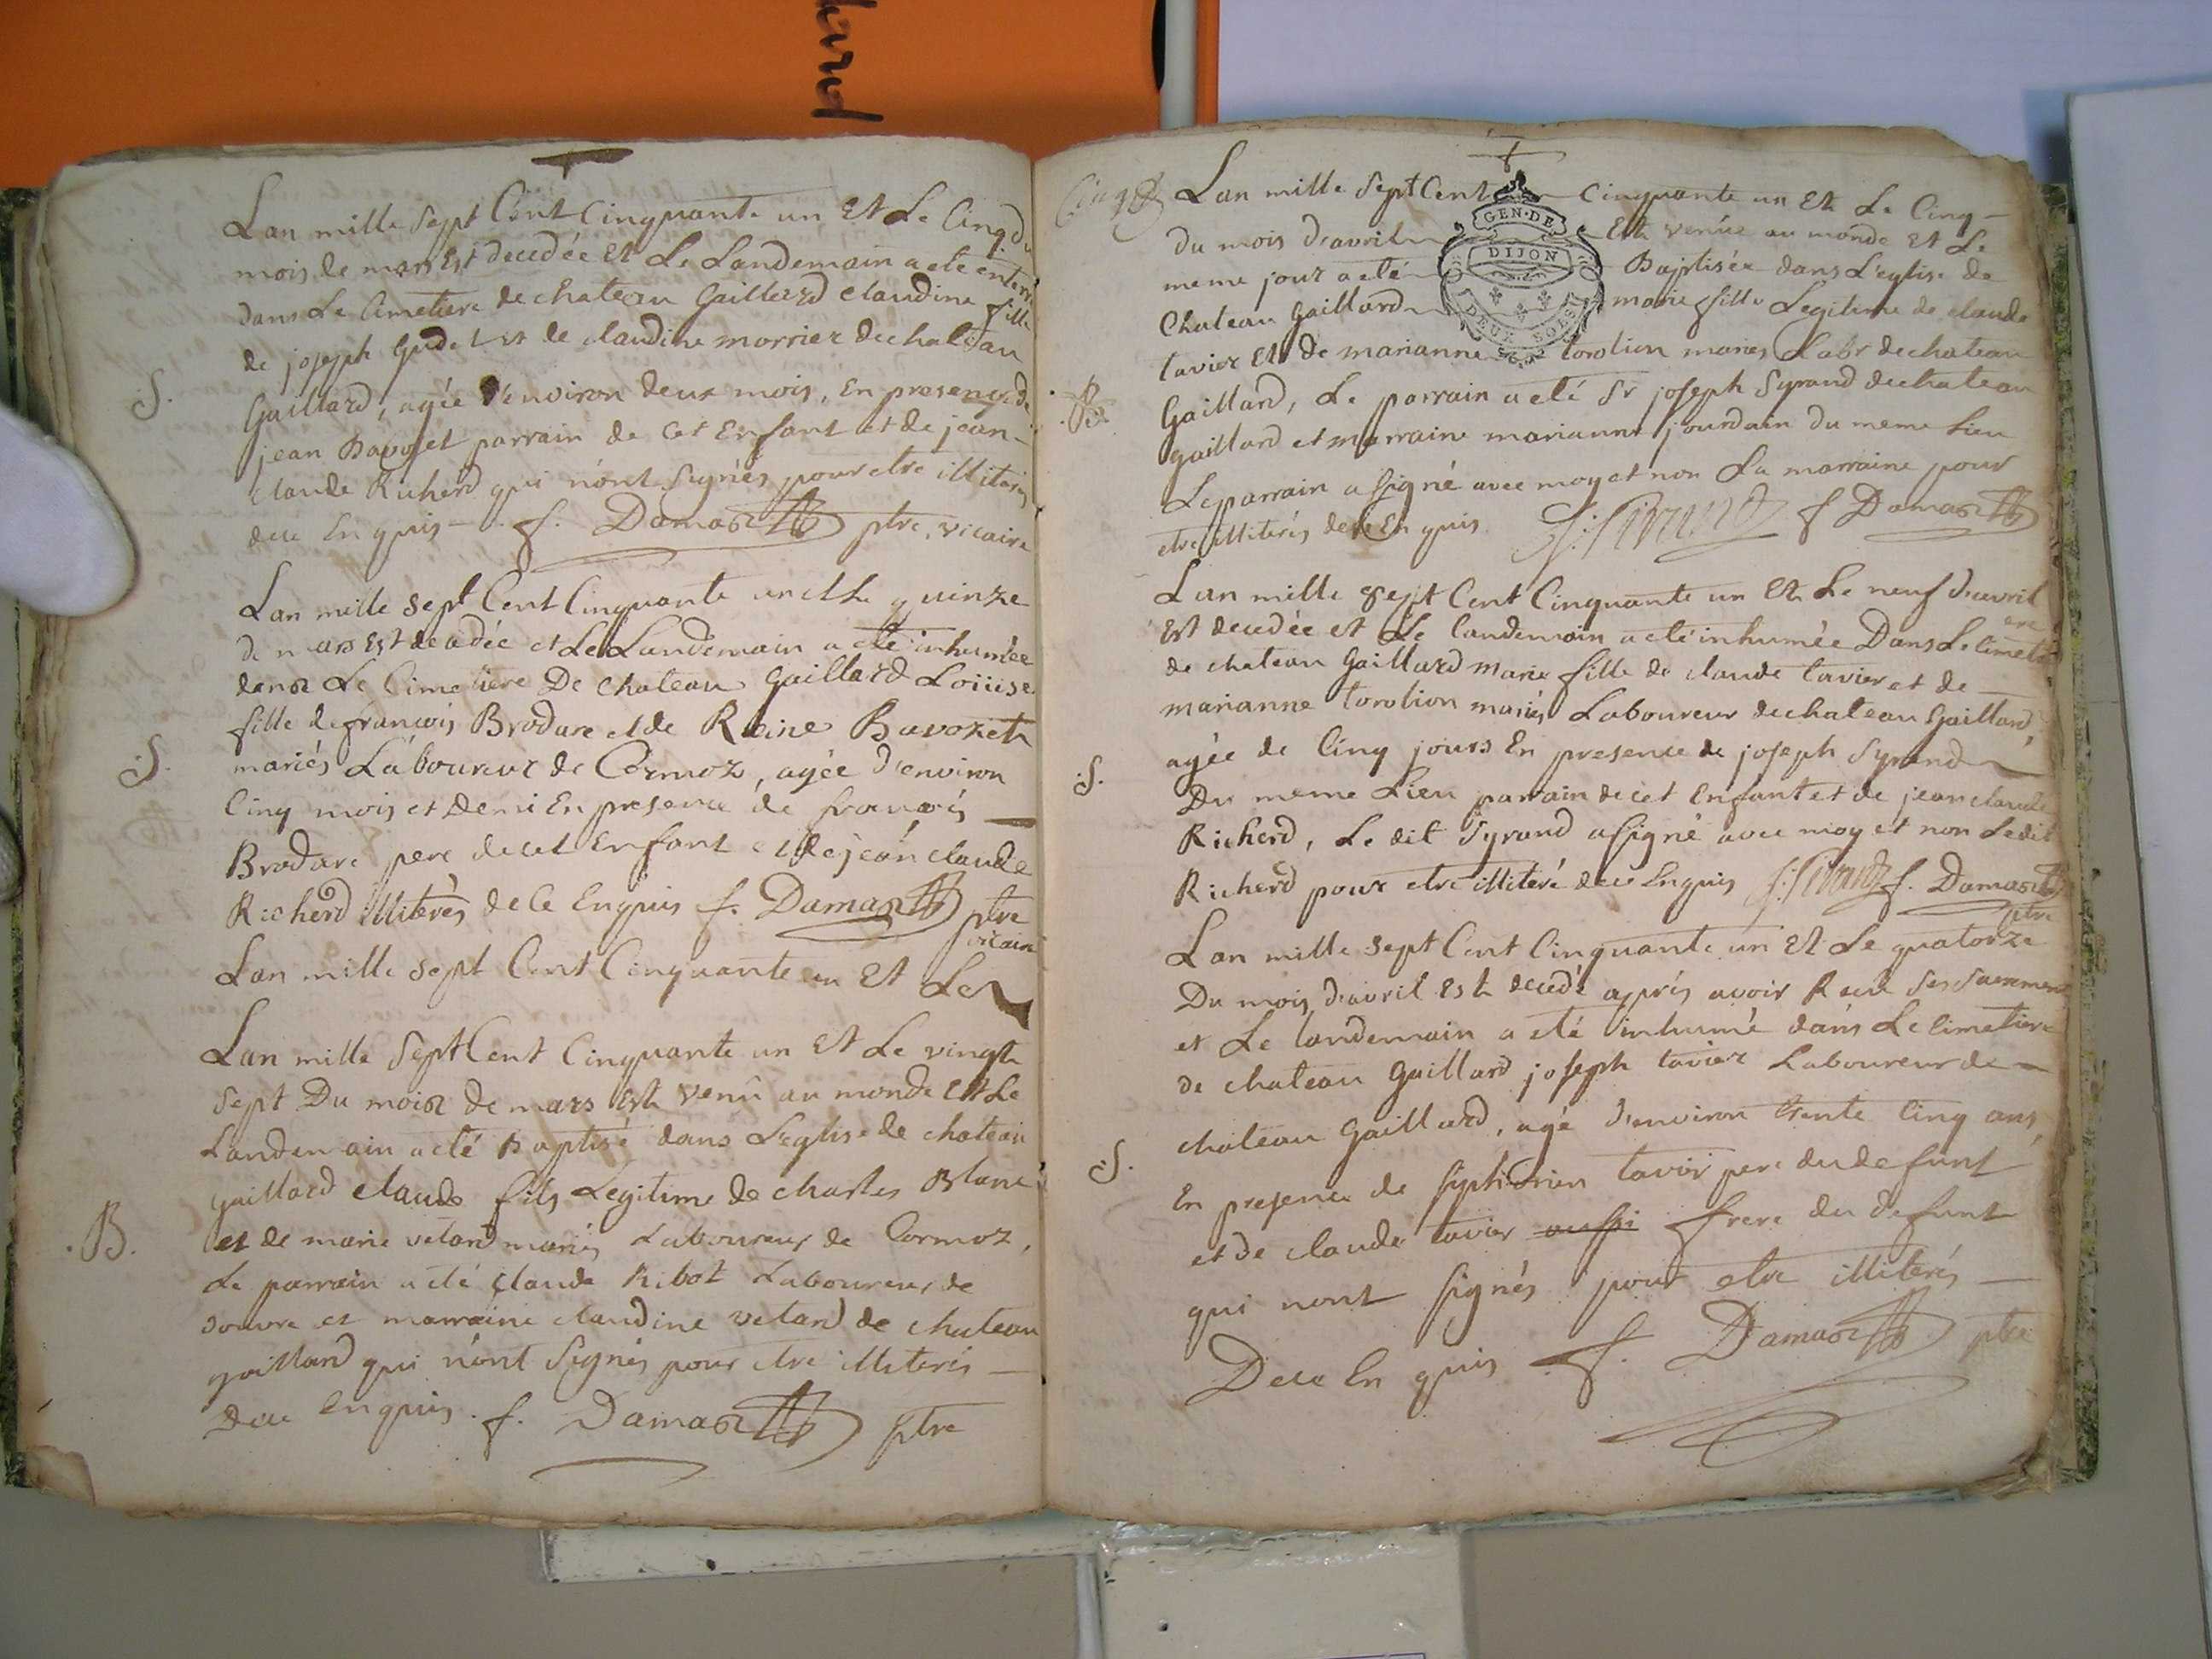 Lan mille sept Cent Cinquante un Et Le Cinq du
mois de mars Est decedée Et Le Landemain a eté enterré
dans Le Cimetiere de chateau Gaillard claudine fille
de joseph Gudet et de claudine morrier de chateau
S.
Gaillard, agée d'environ deux mois, En presence de
jean Bavozet parrain de cet Enfant et de jean-
claude Richerd qui n'ont signés pour etre illiterés
dece Enquis f. Damas ptre, vicaire
Lan mille sept Cent Cinquante un et Le quinze
de mars Est decedée et Le Landemain a eté inhumée
dans Le Cimetiere De chateau Gaillard Loüise
fille de francois Brodare et de Reine Bavozet
S.
mariés Laboureur de Cormoz, agée d'environ
Cinq mois et Demi En presence de francois
Brodare pere de cet Enfant et de jean claude
Richerd illiterés de Ce Enquis f. Damas ptre
vicaire
Lan mille sept Cent Cinquante un Et Le
Lan mille Sept Cent Cinquante un Et Le vingt
sept Du mois de mars Est venû au monde Et Le
Landemain a eté Baptisé dans L'eglise de chateau
gaillard claude fils Légitime de charles Blanc
.B.
et de marie vetard mariés Laboureurs de Cormoz,
Le parrain a eté claude Ribot Laboureur de
douvre et marraine claudine vetard de chateau
gaillard qui n'ont signés pour etre illiterés
dece Enquis. f. Damas ptre
Cinq
Lan mille Sept Cent Cinquante un Et Le Cinq
GEN. DE
DIJON
DEUX SOLS
du mois d'avril Est venüe au monde et Le
meme jour a eté Baptisée dans L'eglise de
Chateau Gaillard marie fille Legitime de claude
tavier Et de marianne torolion mariés Labr de chateau
.B.
Gaillard, Le parrain a eté Sr joseph Syrand de chateau
gaillard et marraine marianne jourdain du meme Lieu
Le parrain a signé avec moy et non La marraine pour
etre illiterés dece Enquis J: Sirand f Damas
Lan mille sept Cent Cinquante un Et Le neuf d'avril
Est decedée et Le landemain a eté inhumée Dans Le Cimetiere
de chateau Gaillard marie fille de claude tavier et de
marianne torolion mariés Laboureur de chateau Gaillard,
agée de Cinq jours En presence de joseph Syrand
.S.
Du meme Lieu parrain de cet Enfant et de jean claude
Richerd, Le dit Syrand a signé avec moy et non Ledit
Richerd pour etre illiteré dece Enquis J: Sirand f. Damas
ptre
Lan mille sept Cent Cinquante un Et Le quatorze
Du mois d'avril Est decedé aprés avoir Recû ses sacremens
et Le landemain a eté inhumé dans Le cimetiere
de chateau Gaillard joseph tavier Laboureur de
chateau Gaillard, agé d'environ trente Cinq ans,
.S.
En presence de siphorien tavier pere du defunt
et de claude tavier aussi frere du defunt
qui nont signés pour etre illiterés
Dece Enquis f. Damas ptre